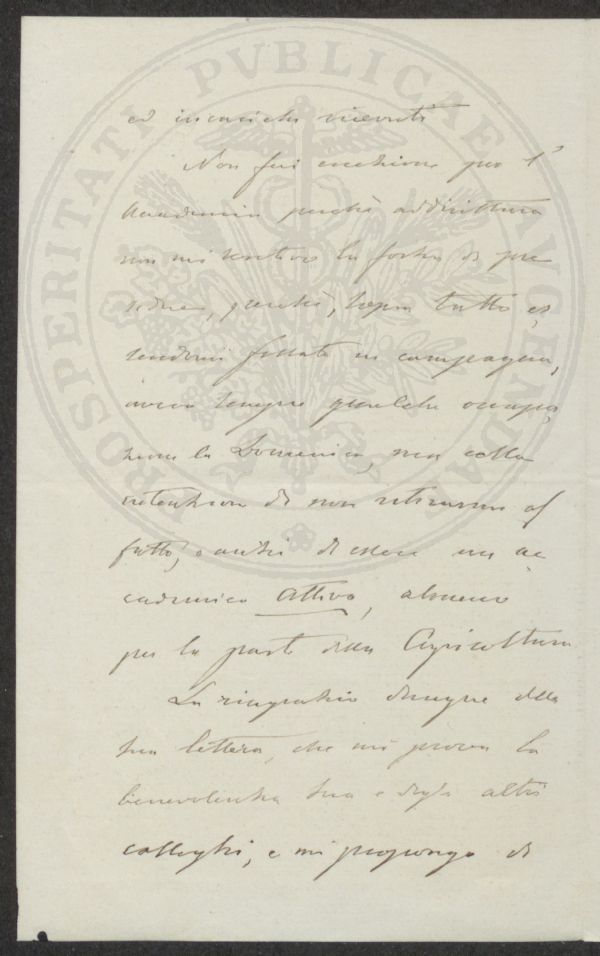 PROSPERITATI PVBLICAE AVGENDAE
ed incarichi ricevuti
Non feci eccezione per l'
Accademia perchè addirittura
non mi sentivo la forza di pre
siedere, perchè, sopra tutto es
sendomi fissato in campagna,
aveva sempre qualche occupa
zione la Domenica, ma colla
intenzione di non ritirarmi af
fatto, e anzi di essere un ac
cademico attivo, almeno
per la parte della Agricoltura
La ringrazio dunque della
sua lettera, che mi prova la
benevolenza sua e degli altri
colleghi, e mi propongo di